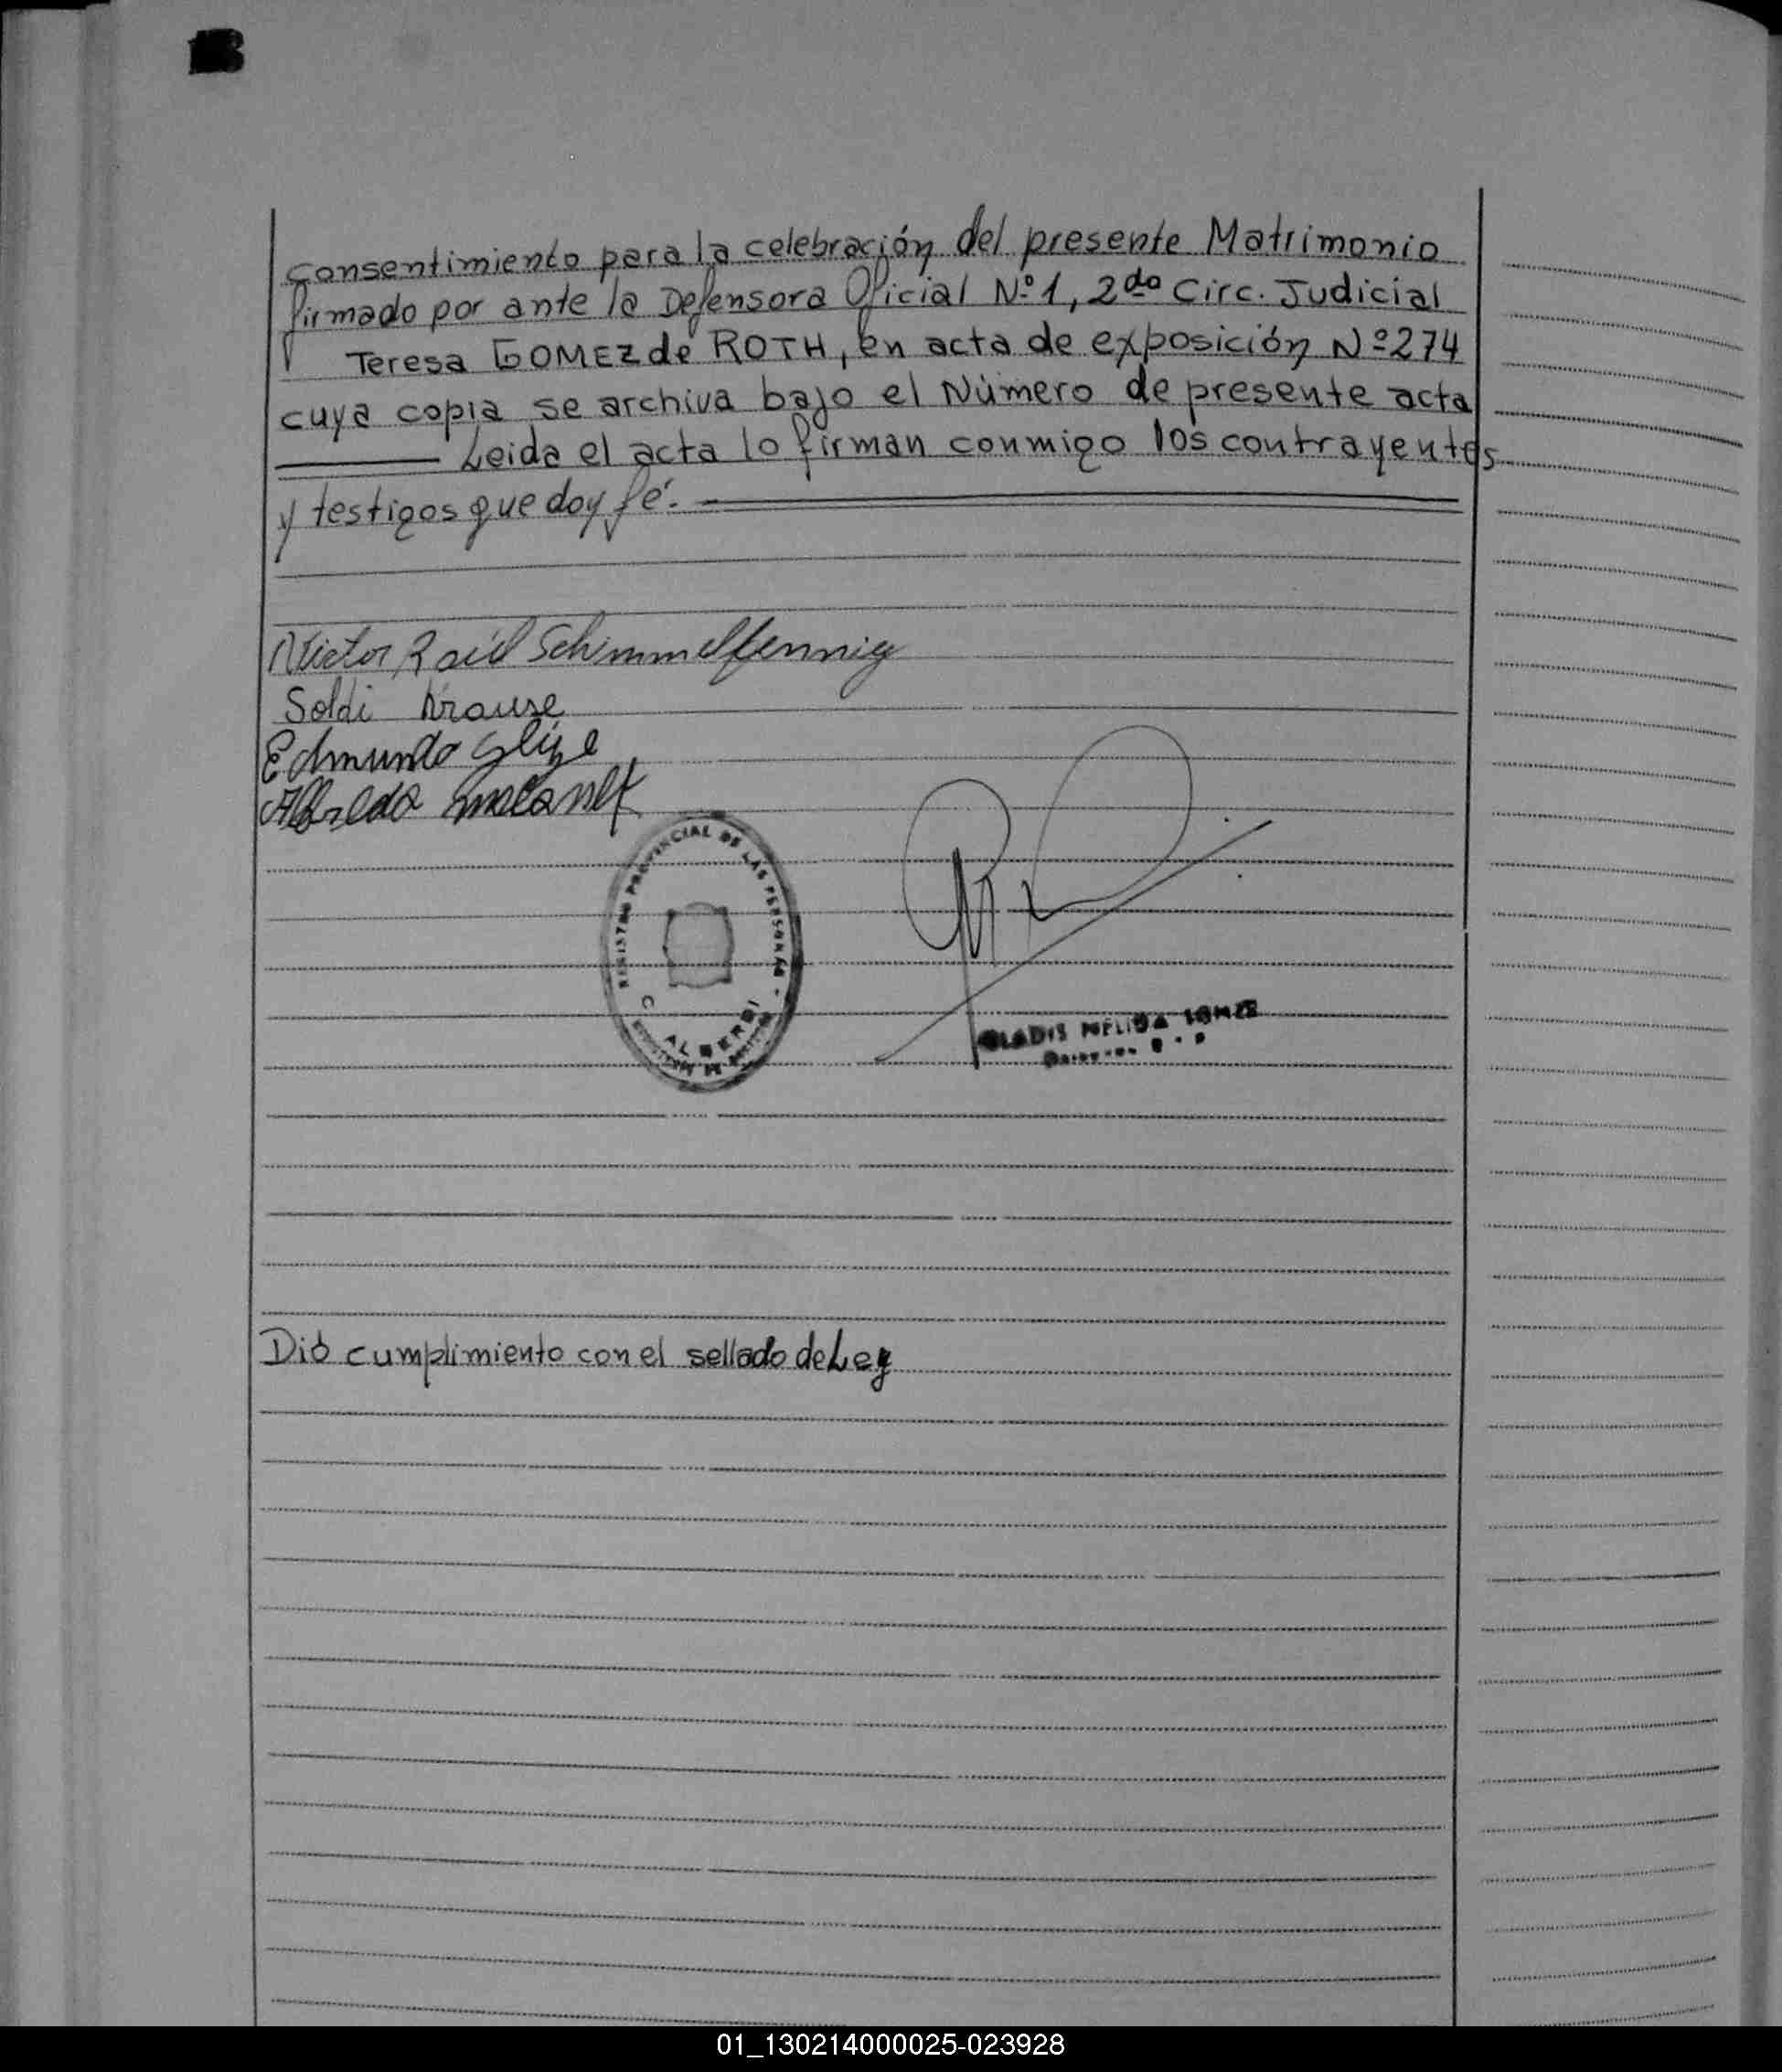 consentimiento para la celebración del presente Matrimonio
firmado por ante la Defensora Oficial Nº1, 2da Circ. Judicial
Teresa GOMEZ de ROTH, en acta de exposición Nº274
cuya copia se archiva bajo el Número de presente acta
Leida el acta lo firman conmigo los contrayentes
y testigos que doy fé.
Victor Raúl Schimmelfennig
Soldi Krause
Edmundo
Alfredo
REGISTRO PROVINCIAL DE LAS PERSONAS
C. ALBERDI
GLADIS NELIDA
Dió cumplimiento con el sellado de Ley
01_130214000025-023928